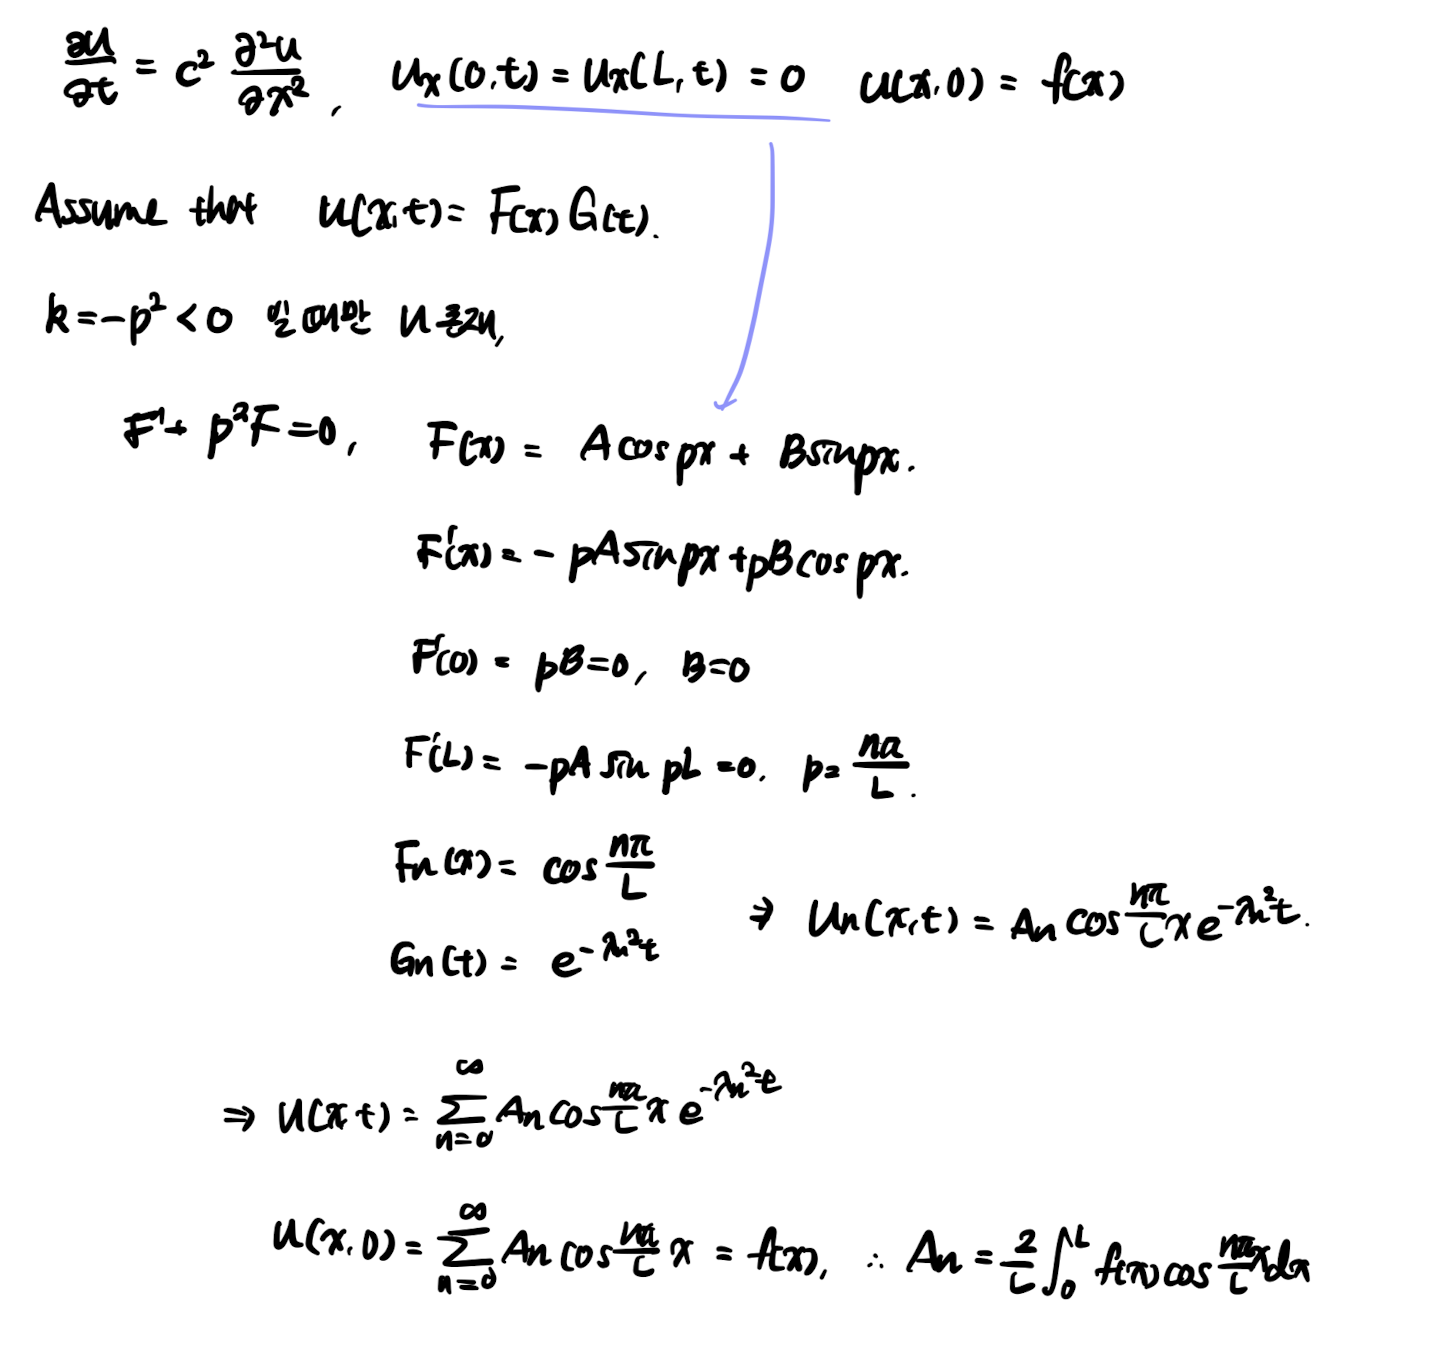 ∂u/∂t = c² ∂²u/∂x², uₓ(0,t) = uₓ(L,t) = 0 u(x,0) = f(x)
Assume that u(x,t) = F(x)G(t).
k = -p² < 0 일 때만 u 존재,
F'' + p²F = 0, F(x) = A cos px + B sin px.
F'(x) = - pA sin px + pB cos px.
F'(0) = pB = 0, B = 0
F'(L) = -pA sin pL = 0. p = nπ/L.
Fn(x) = cos nπ/L
⇒ Un(x,t) = An cos nπ/L x e^(-λn²t).
Gn(t) = e^(-λn²t)
⇒ u(x t) = ∑_{n=0}^{∞} An cos nπ/L x e^(-λn²t)
u(x,0) = ∑_{n=0}^{∞} An cos nπ/L x = f(x), ∴ An = 2/L ∫₀ᴸ f(x) cos nπ/L x dx